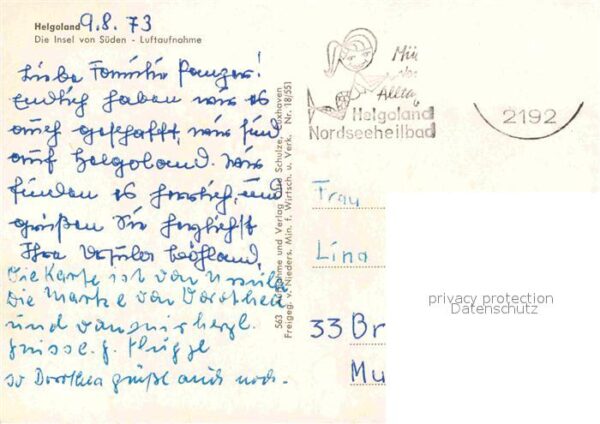 Helgoland 9.8.73
Die Insel von Süden - Luftaufnahme
Liebe Familie Panzer!
Endlich haben wir es
auch geschafft, wir sind
auf Helgoland. Wir
finden es herrlich, und
grüßen Sie herzlichst
Ihre Ursula
Die Karte ist von Ursula
die Marke von Dorothea
und von mir herzl.
Grüsse. J. Flügge
so Dorothea grüßt auch noch.
563 Aufnahme und Verlag Otto Schulze, Cuxhaven
Freigeg. v. Nieders. Min. f. Wirtsch. u. Verk. Nr. 18/551
Helgoland
Nordseeheilbad
2192
Frau
Lina
33 Br
Mu
privacy protection
Datenschutz